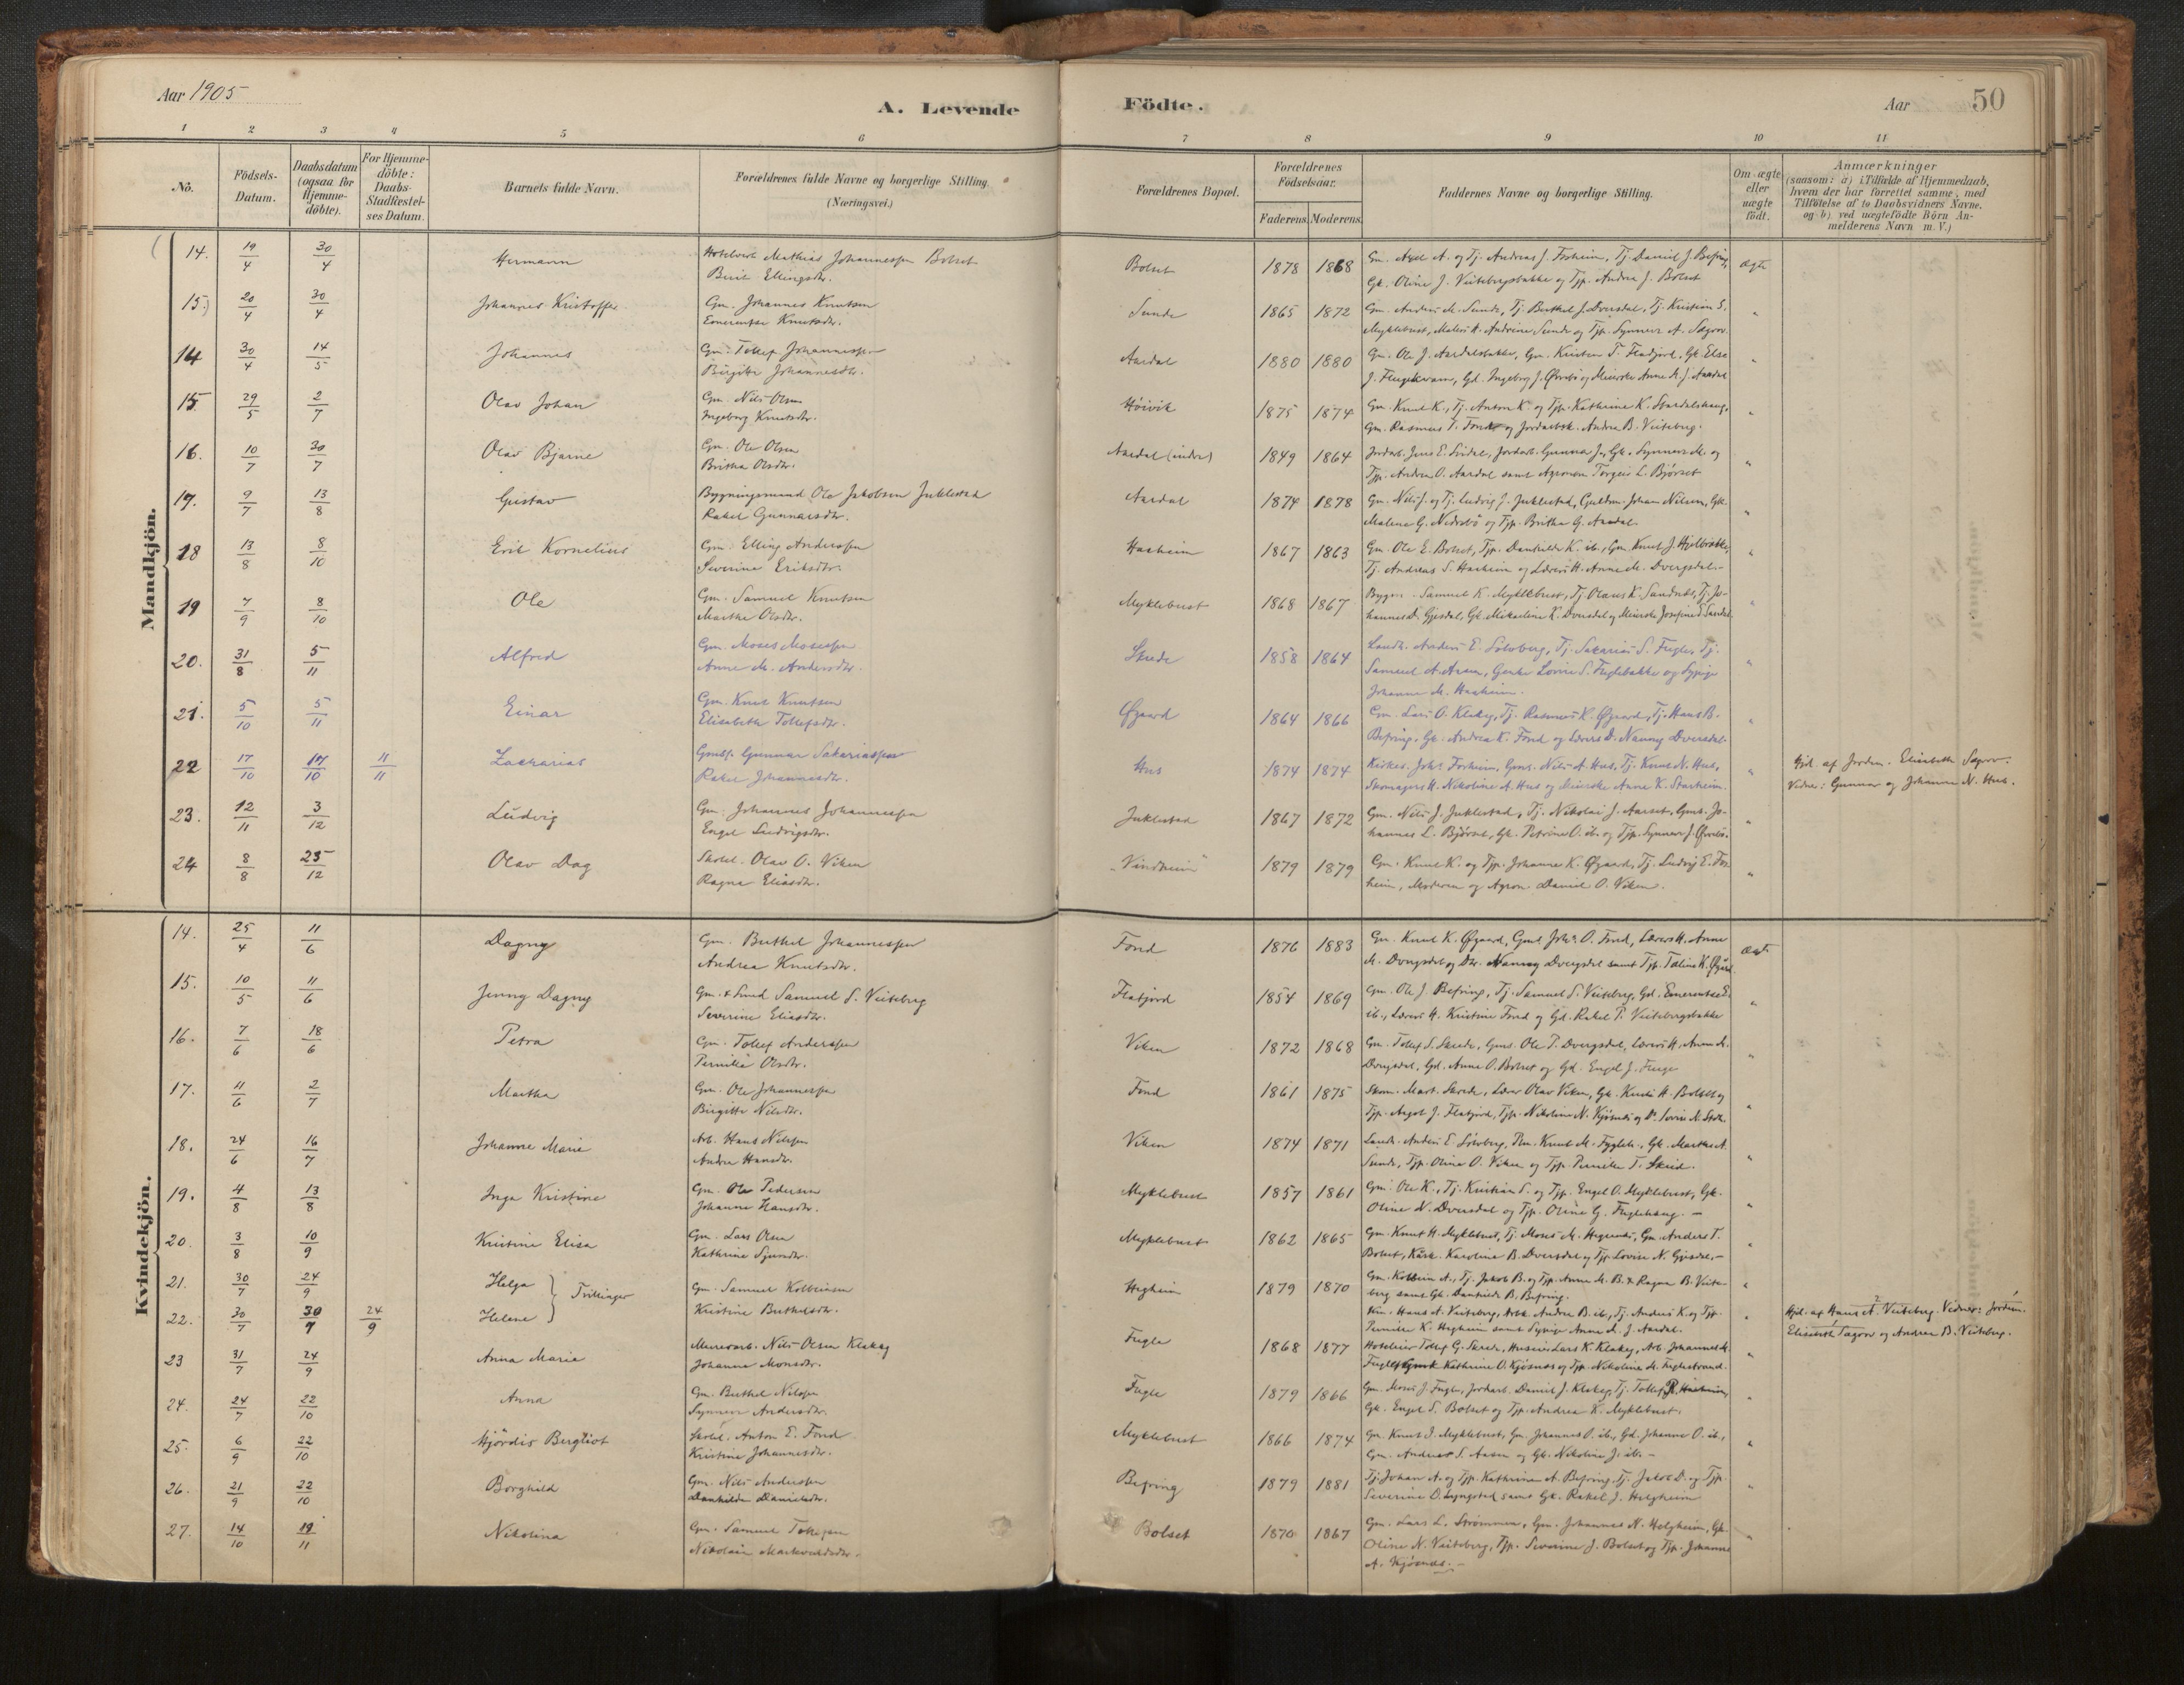 Aar 1905
A. Levende
Födte.
Aar
50
1 2 3 4 5 6 7 8 9 10 11
No.
Födsels-Datum.
Daabsdatum (ogsaa for Hjemme-döbte).
For Hjemme-döbte: Daabs-Stadfæstel-ses Datum.
Barnets fulde Navn.
Forældrenes fulde Navne og borgerlige Stilling. (Næringsvei.)
Forældrenes Bopæl.
Forældrenes Födselsaar.
Faderens. Moderens.
Faddernes Navne og borgerlige Stilling.
Om ægte eller uægte födt.
Anmærkninger
(saasom: a) i Tilfælde af Hjemmedaab,
hvem der har forrettet samme, med
Tilföielse af to Daabsvidners Navne,
og b) ved uægtefödte Börn An-
melderens Navn m. V.)
Mandkjön.
14. 19/4 30/4 Hermann Mathias Johannessen Bolset
Berit Ellingsdtr. Bolset 1878 1868 Gm. Axel A. og Tj. Andreas J. Forheim, Tj. Daniel J. Befring, ægte
Gk. Oline J. Veitebergsbakke og Tjp. Andrea J. Bolset
15.) 20/4 30/4 Johannes Kristoffer Gm. Johannes Knutsen
Emerentse Knutsdtr. Sunde 1865 1872 Gm. Anders M. Sunde, Tj. Berthel J. Dversdal, Tj. Kristian S. "
Myklebust, Andrine Sunde og Tjp. Synneve A. Sægrov
14 30/4 14/5 Johannes Gm. Tollef Johannessen
Birgitte Johannesdtr. Aardal 1880 1880 Gm. Ole J. Aardalsbakke, Gm. Kristen T. Flatjord, Gk. Else
Gd. Ingeborg J. og Meierske Anne M. J. Aardal
15 29/5 2/7 Olav Johan Gm. Nils Olsen
Ingeborg Knutsdtr. Høivik 1875 1874 Gm. Knut K., Tj. Anton K. og Tjp. Kathrine K. "
Gm. Rasmus T. Fond og Jordarbsk. Andrea B. Veiteberg.
16. 10/7 30/7 Olav Bjarne Gm. Ole Olsen
Britha Olsdtr. Aardal (indre) 1849 1864 Jordarb. Jens E. Svidal, Jordarb. Gunnar J., Gk. Synneve M. og "
Tjp. Andrea O. Aardal samt Agronom Torgeir L. Bjørset
17. 9/7 13/8 Gustav Bygningsmand Ole Jakobsen Juklestad
Rakel Gunnarsdtr. Aardal 1874 1878 Gm. Nils J. og Tj. Ludvig J. Juklestad, Guldsm. Johan Nilsen, Gk. "
Malene G. Nedrebö og Tjp. Britha G. Aardal.
18 13/8 8/10 Erik Kornelius Gm. Elling Anderssen
Severine Eriksdtr. Haaheim 1867 1863 Gm. Ole E. Bolset, Tjp. Danhilde K. ib., Gm. Knut J. Hjelbrekke, "
Tj. Andreas S. Haaheim og Lærers H. Anne M. Dvergsdal.-
19 7/9 8/10 Ole Gm. Samuel Knutsen
Marthe Olsdtr. Myklebust 1868 1867 Bygm. Samuel K. Myklebust, Tj. Olaus K. Sandnes, Tj. Jo- "
hannes D. Gjesdal, Gk. Mikaeline K. Dversdal og Meierske Josefine S. Sandal
20. 31/8 5/11 Alfred Gm. Moses Mosessen
Anne M. Andersdtr. Skrede 1858 1864 Landh. Anders E. Solvberg, Tj. Sakarias S. Fugle, Tj. "
Samuel A. Aasen, Lovise S. Fuglebakke og Sypige
Johanne M. Haaheim.
21. 5/10 5/11 Einar Gm. Knut Knutsen
Elisabeth Tollefsdtr. Øgaard 1864 1866 Gm. Lars O. Klakeg, Tj. Rasmus K. Øgaard, Tj. Hans B. "
Befring, Gk. Andrea K. Fond og Lærers D. Nanny Dversdal.
22 17/10 17/10 11/11 Zacharias Gmss. Gunnar Sakariassen
Rakel Johannesdtr. Hus 1874 1874 Johs. Forheim, Gms. Nils A. Hus, Tj. Knut N. Hus, "
Skomagers H. Nikoline A. Hus og Meierske Anna K. Starheim.
Hjd. af Jordm. Elisabeth Sægrov.
Vidner: Gunnar og Johanne N. Hus.
23. 12/11 3/12 Ludvig Gm. Johannes Johannessen
Engel Ludvigsdtr. Juklestad 1867 1872 Gm. Nils J. Juklestad, Tj. Nikolai J. Aarset, Gms. Jo- "
hannes L. Bjørset, Gk. Petrine O. ib. og Tjp. Synneve J.
24 8/8 25/12 Olav Dag Skolel. Olav O. Viken
Ragna Eliasdtr. "Vindheim" 1879 1879 Gm. Knut K. og Tjp. Johanne K. Øgaard, Tj. Ludvig E. For- "
heim, Moderen og Agron. Daniel O. Viken.
Kvindekjön.
14. 25/4 11/6 Dagny Gm. Berthel Johannessen
Andrea Knutsdtr. Fond 1876 1883 Gm. Knut K. Øgaard, Gms. Johs. O. Fond, Lærers H. Anne ægte
M. Dvergsdal og Dtr. Nanny Dvergsdal samt Tjp. Taline K. Øgård
15. 10/5 11/6 Jenny Dagny Gm. & Smed Samuel S. Veiteberg
Severine Eliasdtr. Flatjord 1854 1869 Gm. Ole J. Befring, Tj. Samuel S. Veiteberg, Gd. Emerentse E. "
ib., Lærers H. Kristine Fond og Gd. Rakel P. Veitebergsbakke
16. 7/6 18/6 Petra Gm. Tollef Anderssen
Pernille Olsdtr. Viken 1872 1868 Gm. Tollef S. Skrede, Gms. Ole P. Dvergsdal, Lærers H. Anne M. "
Dvergsdal, Gd. Anne O. Bolset og Gd. Engel J. Fuge
17. 11/6 2/7 Martha Gm. Ole Johannessen
Birgitte Nilsdtr. Fond 1861 1875 Skom. Mart. Skrede, Lærer Olav Viken, Gk. H. Bolset og "
Tjp. J. Flatjord, Tjp. Nikoline N. Kjösnes og
18. 24/6 16/7 Johanne Marie Arb. Hans Nilssen
Andrea Hansdtr. Viken 1874 1871 Landh. Anders E. Solvberg, Knut M. Gk. Marthe A. "
Sunde, Tjp. Oline O. Viken og Tjp. Pernille T. Skrede.
19. 4/8 13/8 Inga Kristine Gm. Ole Pedersen
Johanne Hansdtr. Myklebust 1857 1861 Gm. Ole K., Tj. Kristian S. og Tjp. Engel O. Myklebust, Gk. "
Oline N. Dversdal og Tjp. Oline G. Fuglehaug. -
20. 3/8 10/9 Kristine Elisa Gm. Lars Olsen
Kathrine Sjursdtr. Myklebust 1862 1865 Gm. Knut H. Myklebust, Tj. Moses M. Gm. Anders T. "
Bolset, Karoline B. Dversdal og Tjp. Lovise N. Gjesdal.-
21. 30/7 24/9 Helga } Tvillinger Gm. Samuel Kolbeinsen
Kristine Berthelsdtr. Hegheim 1879 1870 Gm. Kolbein A., Tj. Jakob B. og Tjp. Anne M. B. & Ragna B. Veite- "
berg samt Gk. Danhilde B. Befring.
22. 30/7 30/7 24/9 Helene } Hans A. Veiteberg, Andrea B. ib., Tj. Anders K. og Tjp. "
Pernille K. Hegheim samt Sypige Anne M. J. Aardal.
Hjd. af Hans A. Veiteberg. Vidner: Jordm.
Elisabeth Sægrov og Andrea B. Veiteberg.
23 31/7 24/9 Anna Marie Murerarb. Nils Olsen Klakeg
Johanna Monsdtr. Fugle 1868 1877 Hoteleier Tollef G. Skrede, Huseier Lars K. Klakeg, Arb. Johannes M. "
Fugle, Kathrine O. Kjösnes og Tjp. Nikoline M. Fuglestrand.
24. 24/7 22/10 Anna Gm. Berthel Nilssen
Synneve Andersdtr. Fugle 1879 1866 Gm. Moses J. Fugle, Jordarb. Daniel J. Klakeg, Tj. Tollef R. Haaheim, "
Gk. Engel S. Bolset og Tjp. Andrea K. Myklebust.
25. 6/9 22/10 Hjördis Bergliot Skolel. Anton E. Fond
Kristine Johannesdtr. Myklebust 1866 1874 Gm. Knut J. Myklebust, Gm. Johannes O. ib., Gd. Johanne O. ib., "
Gm. Andreas S. Aasen og Gk. Nikoline J. ib. -
26. 21/9 22/10 Borghild Gm. Nils Anderssen
Danhilde Danielsdtr. Befring 1879 1881 Tj. Johan A. og Tjp. Kathrine A. Befring, Tj. Jakob D. og Tjp. "
Severine D. Lyngstad samt Gk. Rakel J. Helgheim
27. 14/10 19/11 Nikolina Gm. Samuel Tollefsen
Nikolai Markvardsdtr. Bolset 1870 1867 Gm. Lars L. Strømmen, Gm. Johannes N. Helgheim, Gk. "
Oline N. Veiteberg, Tjp. Severine J. Bolset og Tjp. Johanne
A. Kjösnes. -